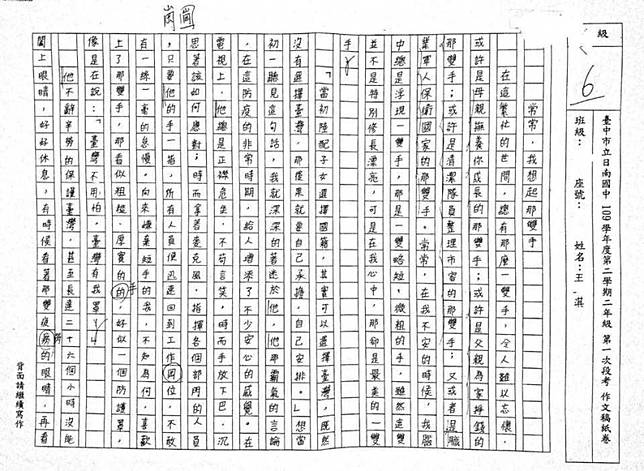 級
6
臺中市立日南國中 109學年度第二學期二年級 第一次段考 作文稿紙卷
班級： 座號： 姓名：王 淇
崗崗
常常，我想起那雙手
在這繁忙的世間，總有那麼一雙手，令人難以忘懷，
或許是母親撫養你成長的那雙手；或許是父親為家掙錢的
那雙手；或許是清潔隊員整理市容的那雙手；又或者是職
業軍人保衛國家的那雙手。常常，在我不安的時候，我腦
中總是浮現一雙手，那是一雙略短、微粗的手，雖然這雙
並不是特別修長漂亮，可是在我心中，那卻是最美的一雙
手。
「當初陸配子女選擇國籍，其實可以選擇臺灣，既然
沒有選擇臺灣，那後果就要自己承擔，自己安排。」想當
初一聽見這句話，我就深深的著迷於他，他那霸氣的言論
，在這防疫的非常時期，給人增添了不少安心的感覺。在
電視上，他總是正襟危坐，不苟言笑，時而手放下巴，沉
思著該如何應對；時而拿著麥克風，指揮各個部門的人員
，只要他的手一指，所有人員便迅速回到工作岡位，不敢
有一絲一毫的怠慢。向來嫌棄短手的我，不知為何，喜歡
上了那雙手，那看似粗糙、厚實的手，好似一個防護罩，
像是在說：「臺灣不用怕，臺灣有我罩！」
他不辭辛勞的保護臺灣，甚至長達二十六個小時沒能
闔上眼睛，好好休息，有時候看著那雙疲倦的眼睛，再看
背面請繼續寫作